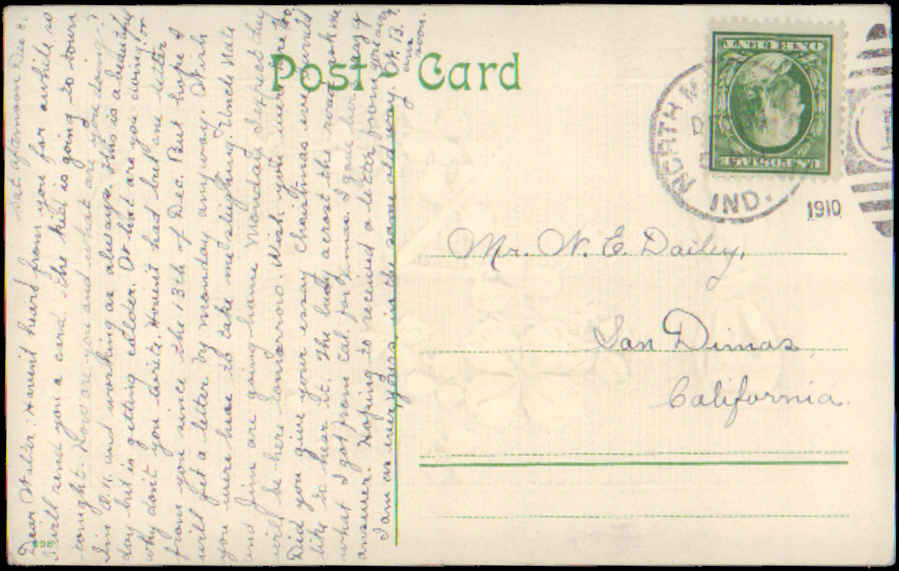 Post Card
ONE CENT
U.S. POSTAGE
NORTH M
D
IND.
1910
Mr. W. E. Dailey,
San Dimas,
California.
Sat afternoon Dec
Dear Haven't heard from you for awhile so
I will send you a card. The kid is going to town
tonight. How are you and what are you doing?
I'm O.K. and working as always. This is a beautiful
day but is getting colder. What are you owing for
why don't you write. Haven't had but one letter
from you since the 13th of Dec. But hope I
will get a letter by monday anyway. Wish
you were here to take me sleighing. Uncle
and Jim are going home Monday I expect they
will be here tomorrow. Wish you were here to.
Did you give your essay Christmas eve, would
like to hear it. The lady across the road asked me
what I got from Cal. for xmas. I gave her a
answer. Hoping to received a letter from you
I am as ever yours, in the same old way. W. B.
ans
soon.
898